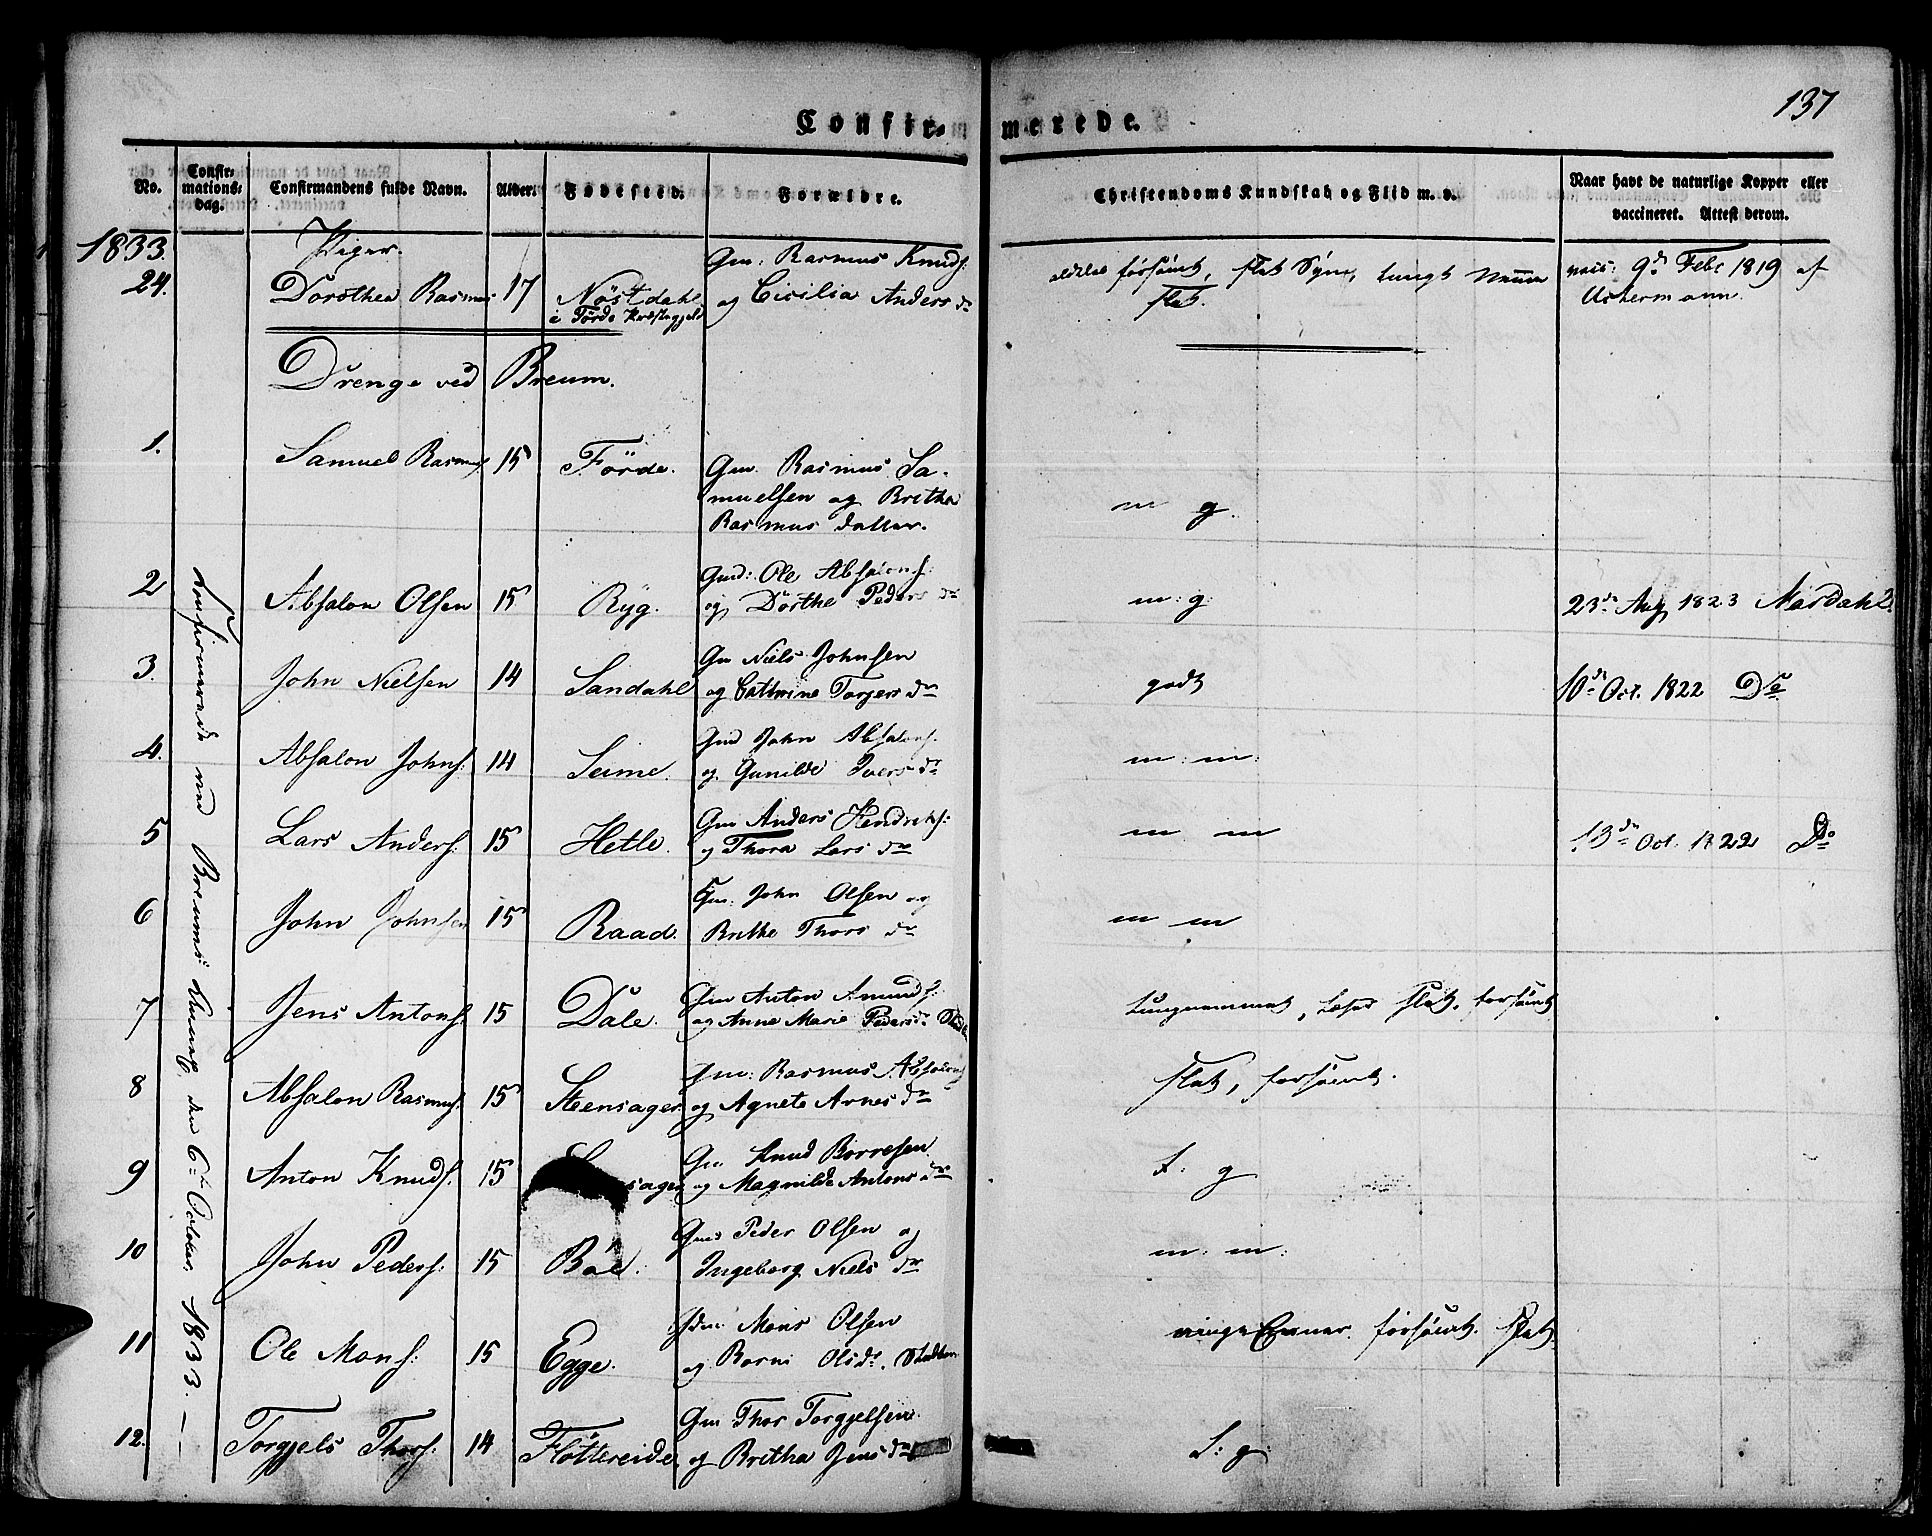 137
Confirmerede.
No. Confirmationsdag. Confirmandens fulde Navn. Alder. Fødested. Forældre. Christendoms Kundskab og Flid m. v. Naar havt de naturlige Kopper eller vaccineret. Attest derom.
1833. Piger.
24. Dorothea Rasmus 17 Nöstdahl i Förde Præstegjeld Gm: Rasmus Knuds: og Cicilia Anders dr forsömt, slet Syn, tungt Nemme slet. vacc: 9de Febr 1819 af Uchermann.
Drenge ved Breum.
Confirmerede ved Breums Kirke den 6te October 1833. —
1. Samuel Rasmus: 15 Förde. Gm. Rasmus Samuelsen og Brithe Rasmus datter. m g.
2 Absalon Olsen 15 Ryg. Gmd: Ole Absalons: og Dorthe Peders dr m: g: 23de Aug 1823 Mardahl
3. John Nielsen 14 Sandahl Gm Niels Johnsen og Cathrine Torgers dr godt 10de Oct. 1822 Do
4. Absalon Johns: 14 Seime. Gmd John Absalons: og Gunilde Ivers dr m: m:
5 Lars Anders: 15 Hetle. Gm Anders Hendriks: og Thora Lars dr m m 13de Oct. 1822 Do
6 John Johnsen 15 Raad. Gm: John Olsen og Brithe Thors dr m m
7 Jens Antons: 15 Dale. Gm Anton Amunds: og Anne Marie Peders dr tungnemmet, læser slet, forsömt
8 Absalon Rasmus: 15 Steensager Gm: Rasmus Absalons: og Agnete Arnes dr slet, forsömt.
9 Anton Knuds: 15 sager Gm Knud Borresen og Magnilde Antons dr t: g
10 John Peders: 15 Böe. Gm: Peder Olsen og Ingeborg Niels dr m: m:
11 Ole Mons: 15 Egge. Gm: Mons Olsen og Borni Ols dr. ringe Evner. forsömt. slet.
12. Torgjels Thors: 14 Flöttereide. Gm Thor Torgjelsen og Britha Jens dr t: g: